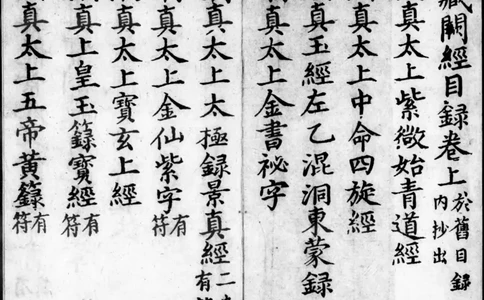 藏闕經目録卷上於舊目録内抄出
真太上紫微始青道經
真太上中命四旋經
真玉經左乙混洞東蒙録
真太上金書祕字
真太上太極録景真經二
真太上金仙紫字有符
真太上寶玄上經
真上皇玉籙寶經有符
真太上五帝黃籙有符